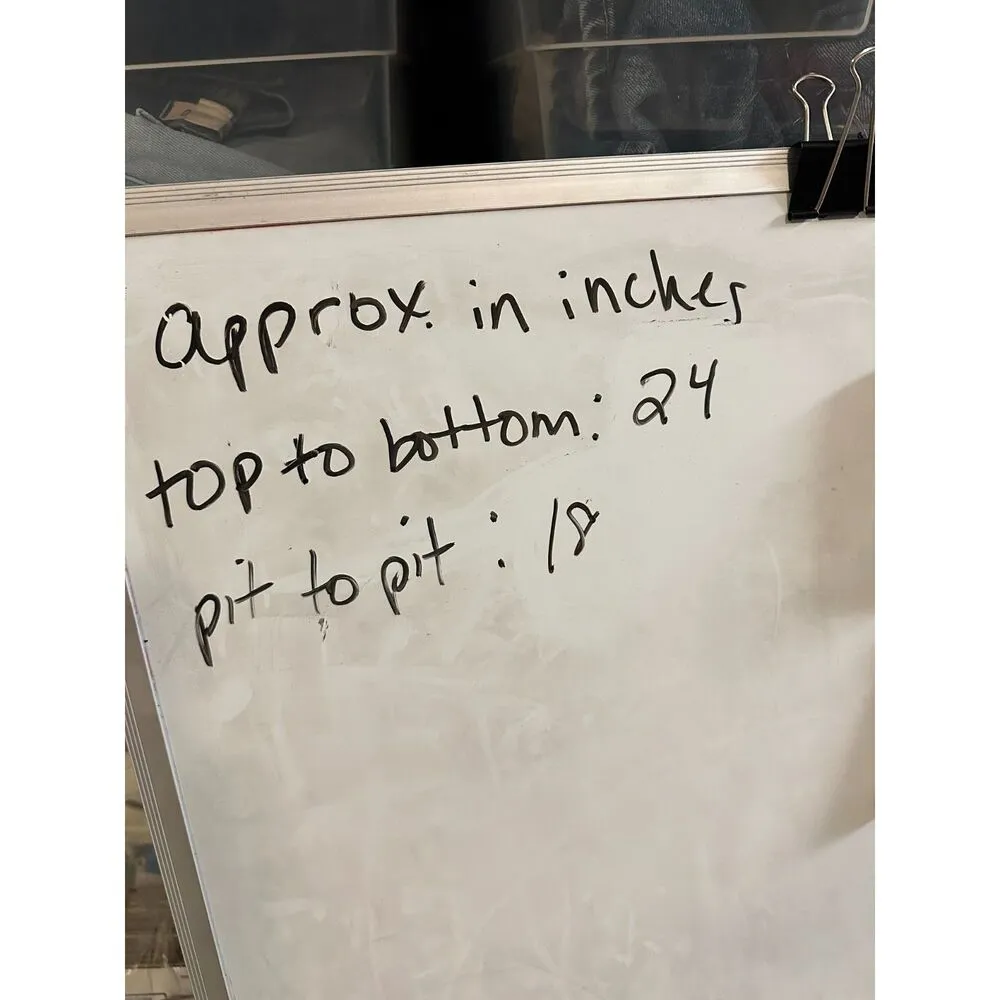 approx. in inches
top to bottom: 24
pit to pit: 18